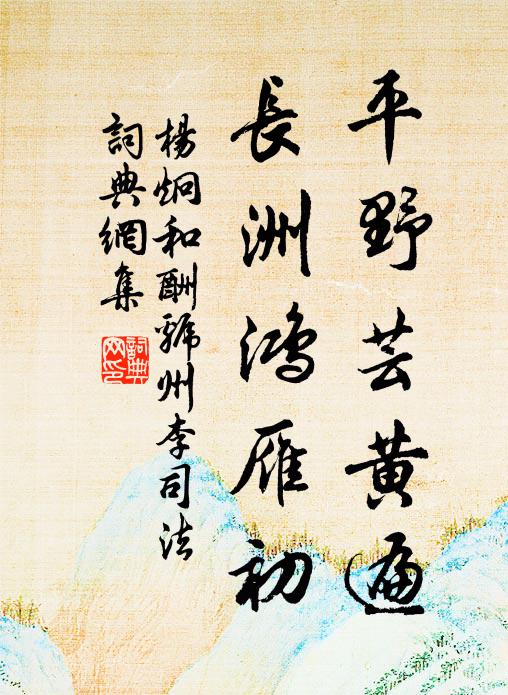 平野芸黄遍
長洲鴻雁初
楊炯和酬虢州李司法
詞典網集
詞典網印